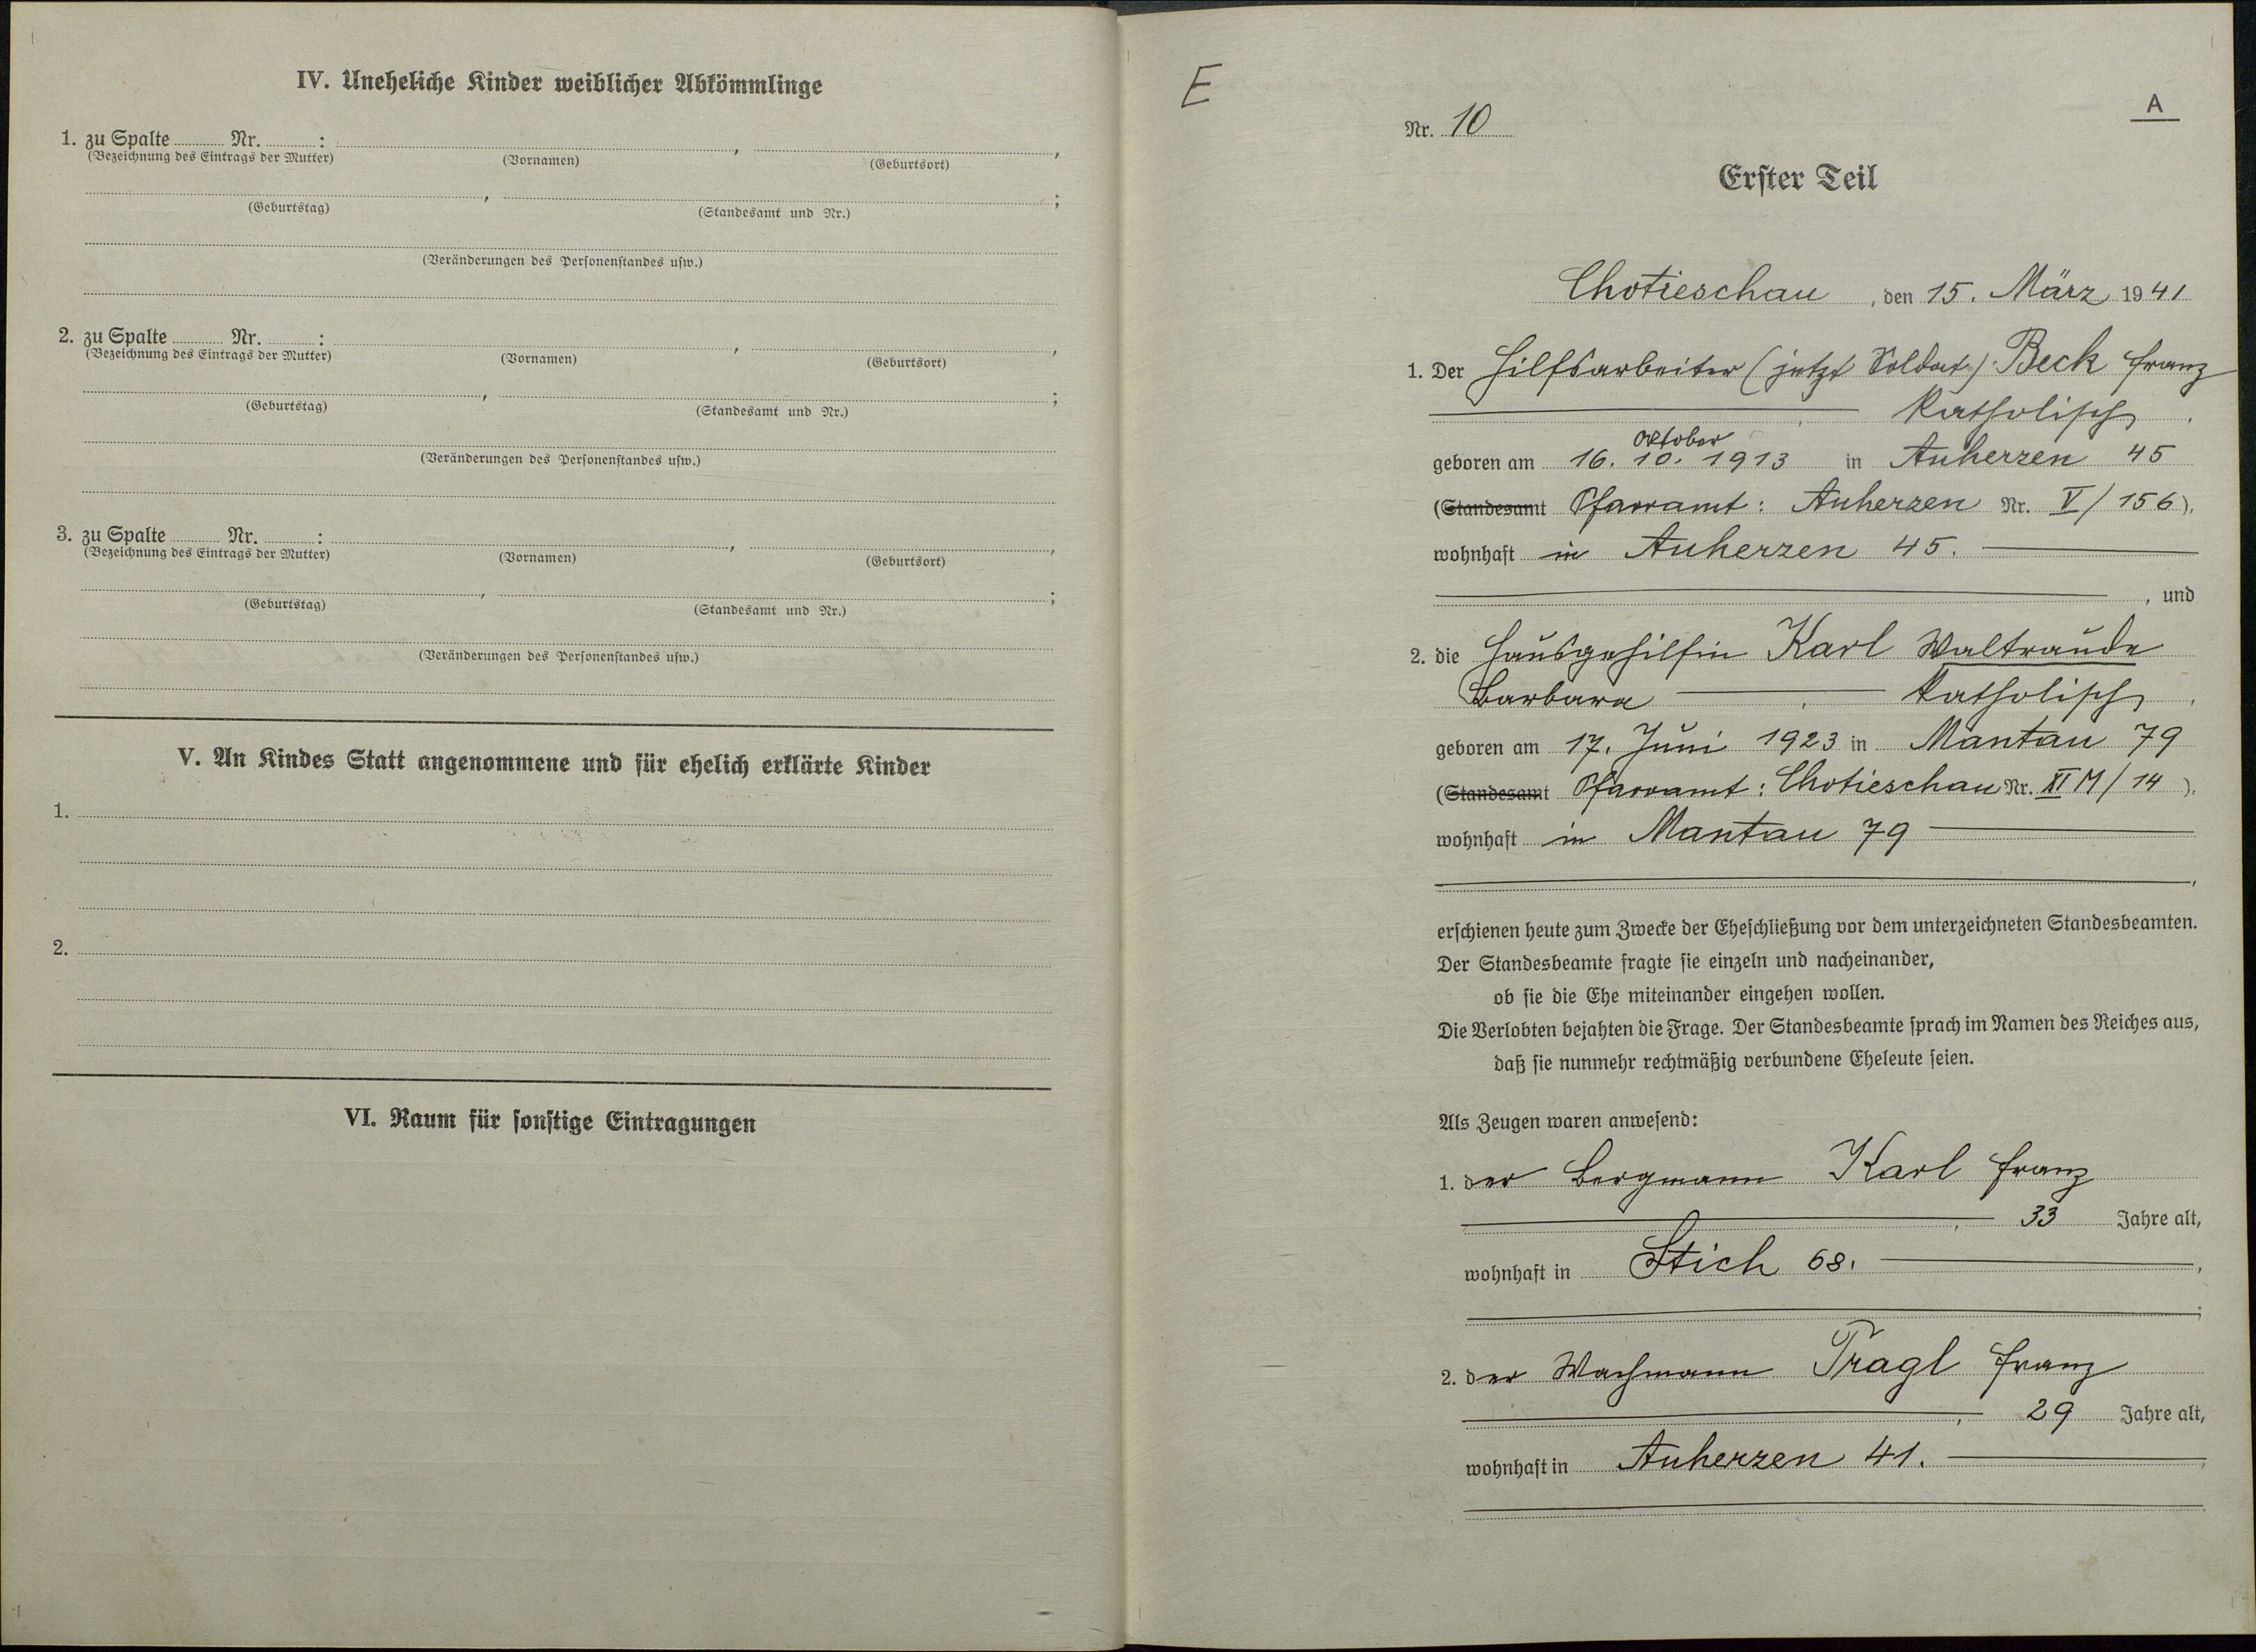 IV. Uneheliche Kinder weiblicher Abkömmlinge
1. zu Spalte ........ Nr. ........ :
(Bezeichnung des Eintrags der Mutter) (Vornamen) (Geburtsort)
(Geburtstag) (Standesamt und Nr.)
(Veränderungen des Personenstandes usw.)
2. zu Spalte ........ Nr. ........ :
(Bezeichnung des Eintrags der Mutter) (Vornamen) (Geburtsort)
(Geburtstag) (Standesamt und Nr.)
(Veränderungen des Personenstandes usw.)
3. zu Spalte ........ Nr. ........ :
(Bezeichnung des Eintrags der Mutter) (Vornamen) (Geburtsort)
(Geburtstag) (Standesamt und Nr.)
(Veränderungen des Personenstandes usw.)
V. An Kindes Statt angenommene und für ehelich erklärte Kinder
1.
2.
VI. Raum für sonstige Eintragungen
E
A
Nr. 10
Erster Teil
Chotieschau, den 15. März 1941
1. Der Hilfsarbeiter (jetzt Soldat) Beck Franz
katholisch,
Oktober
geboren am 16. 10. 1913 in Auherzen 45
(Standesamt Pfarramt: Auherzen Nr. V/156),
wohnhaft in Auherzen 45.
, und
2. die Hausgehilfin Karl Waltraude
Barbara, katholisch,
geboren am 17. Juni 1923 in Mantau 79
(Standesamt Pfarramt: Chotieschau Nr. XI M/14),
wohnhaft in Mantau 79
erschienen heute zum Zwecke der Eheschließung vor dem unterzeichneten Standesbeamten.
Der Standesbeamte fragte sie einzeln und nacheinander,
ob sie die Ehe miteinander eingehen wollen.
Die Verlobten bejahten die Frage. Der Standesbeamte sprach im Namen des Reiches aus,
daß sie nunmehr rechtmäßig verbundene Eheleute seien.
Als Zeugen waren anwesend:
1. der Bergmann Karl Franz
, 33 Jahre alt,
wohnhaft in Stich 68.
2. der Wachmann Tragl Franz
, 29 Jahre alt,
wohnhaft in Auherzen 41.